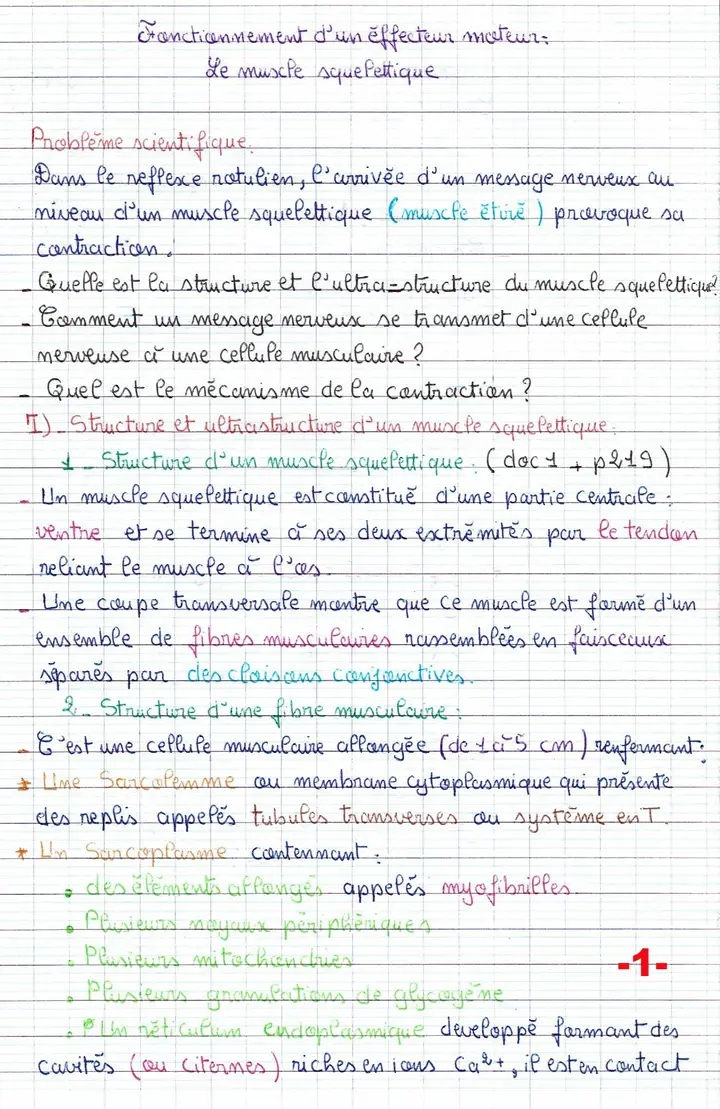 Fonctionnement d'un effecteur moteur:
Le muscle squelettique
Problème scientifique.
Dans le reflexe rotulien, l'arrivée d'un message nerveux au
niveau d'un muscle squelettique (muscle étiré) provoque sa
contraction.
- Quelle est la structure et l'ultra-structure du muscle squelettique?
- Comment un message nerveux se transmet d'une cellule
nerveuse à une cellule musculaire ?
- Quel est le mécanisme de la contraction ?
I)- Structure et ultrastructure d'un muscle squelettique:
1- Structure d'un muscle squelettique: (doc 1 + p219)
- Un muscle squelettique est constitué d'une partie centrale:
ventre et se termine à ses deux extrémités par le tendon
reliant le muscle à l'os.
- Une coupe transversale montre que ce muscle est formé d'un
ensemble de fibres musculaires rassemblées en faisceaux
séparés par des cloisons conjonctives.
2- Structure d'une fibre musculaire:
- C'est une cellule musculaire allongée (de 1 à 5 cm) renfermant:
* Une Sarcolemme ou membrane cytoplasmique qui présente
des replis appelés tubules transverses ou système en T.
* Un Sarcoplasme contennant:
• des éléments allongés appelés myofibrilles.
• Plusieurs noyaux périphériques
• Plusieurs mitochondries
-1-
• Plusieurs granulations de glycogène
• Un réticulum endoplasmique developpé formant des
cavités (ou citernes) riches en ions Ca²+, il est en contact